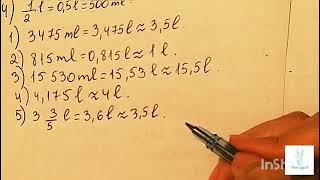 4) 1/2 l = 0,5l = 500ml =
1) 3475ml = 3,475l ≈ 3,5l.
2) 815ml = 0,815l ≈ 1l.
3) 15 530ml = 15,53l ≈ 15,5l.
4) 4,175l ≈ 4l.
5) 3 3/5 l = 3,6l ≈ 3,5l.
InSh